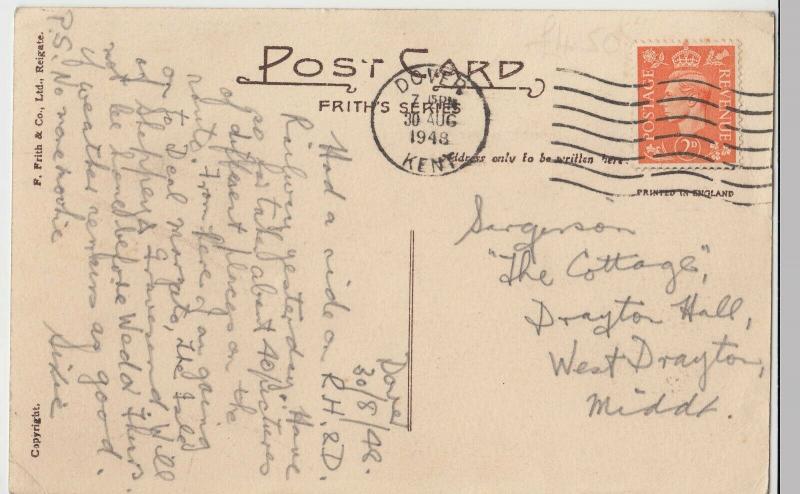 POST CARD
FRITH'S SERIES
Address only to be written here
PRINTED IN ENGLAND
DOVER
7.15PM
30 AUG
1948
KENT
POSTAGE
REVENUE
2D
F. Frith & Co., Ltd., Reigate.
Copyright.
Dover
30/8/48.
Had a ride on R.H. & D.
Railway yesterday. Have
so far taken about 40 pictures
of different places on the
route. From here I am going
on to Deal, Margate, the Isle
of Sheppey & Gravesend. Will
not be home before Wed. or Thurs.
if weather remains as good.
P.S. No more
Sargerson
"The Cottage",
Drayton Hall,
West Drayton,
Middx.